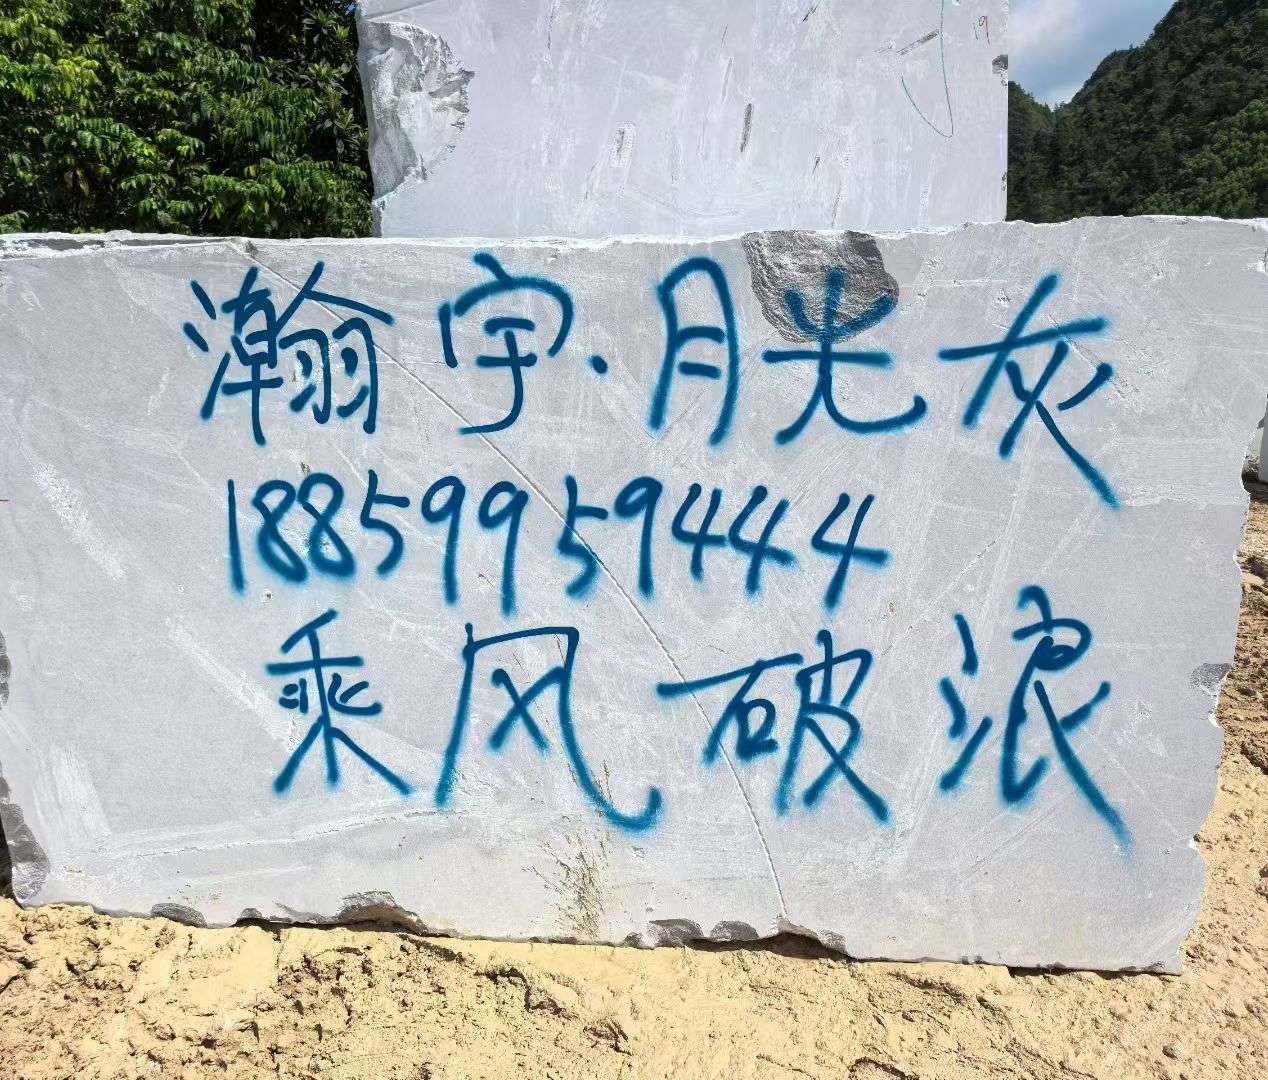 19
瀚宇·月光灰
18859959444
乘风破浪